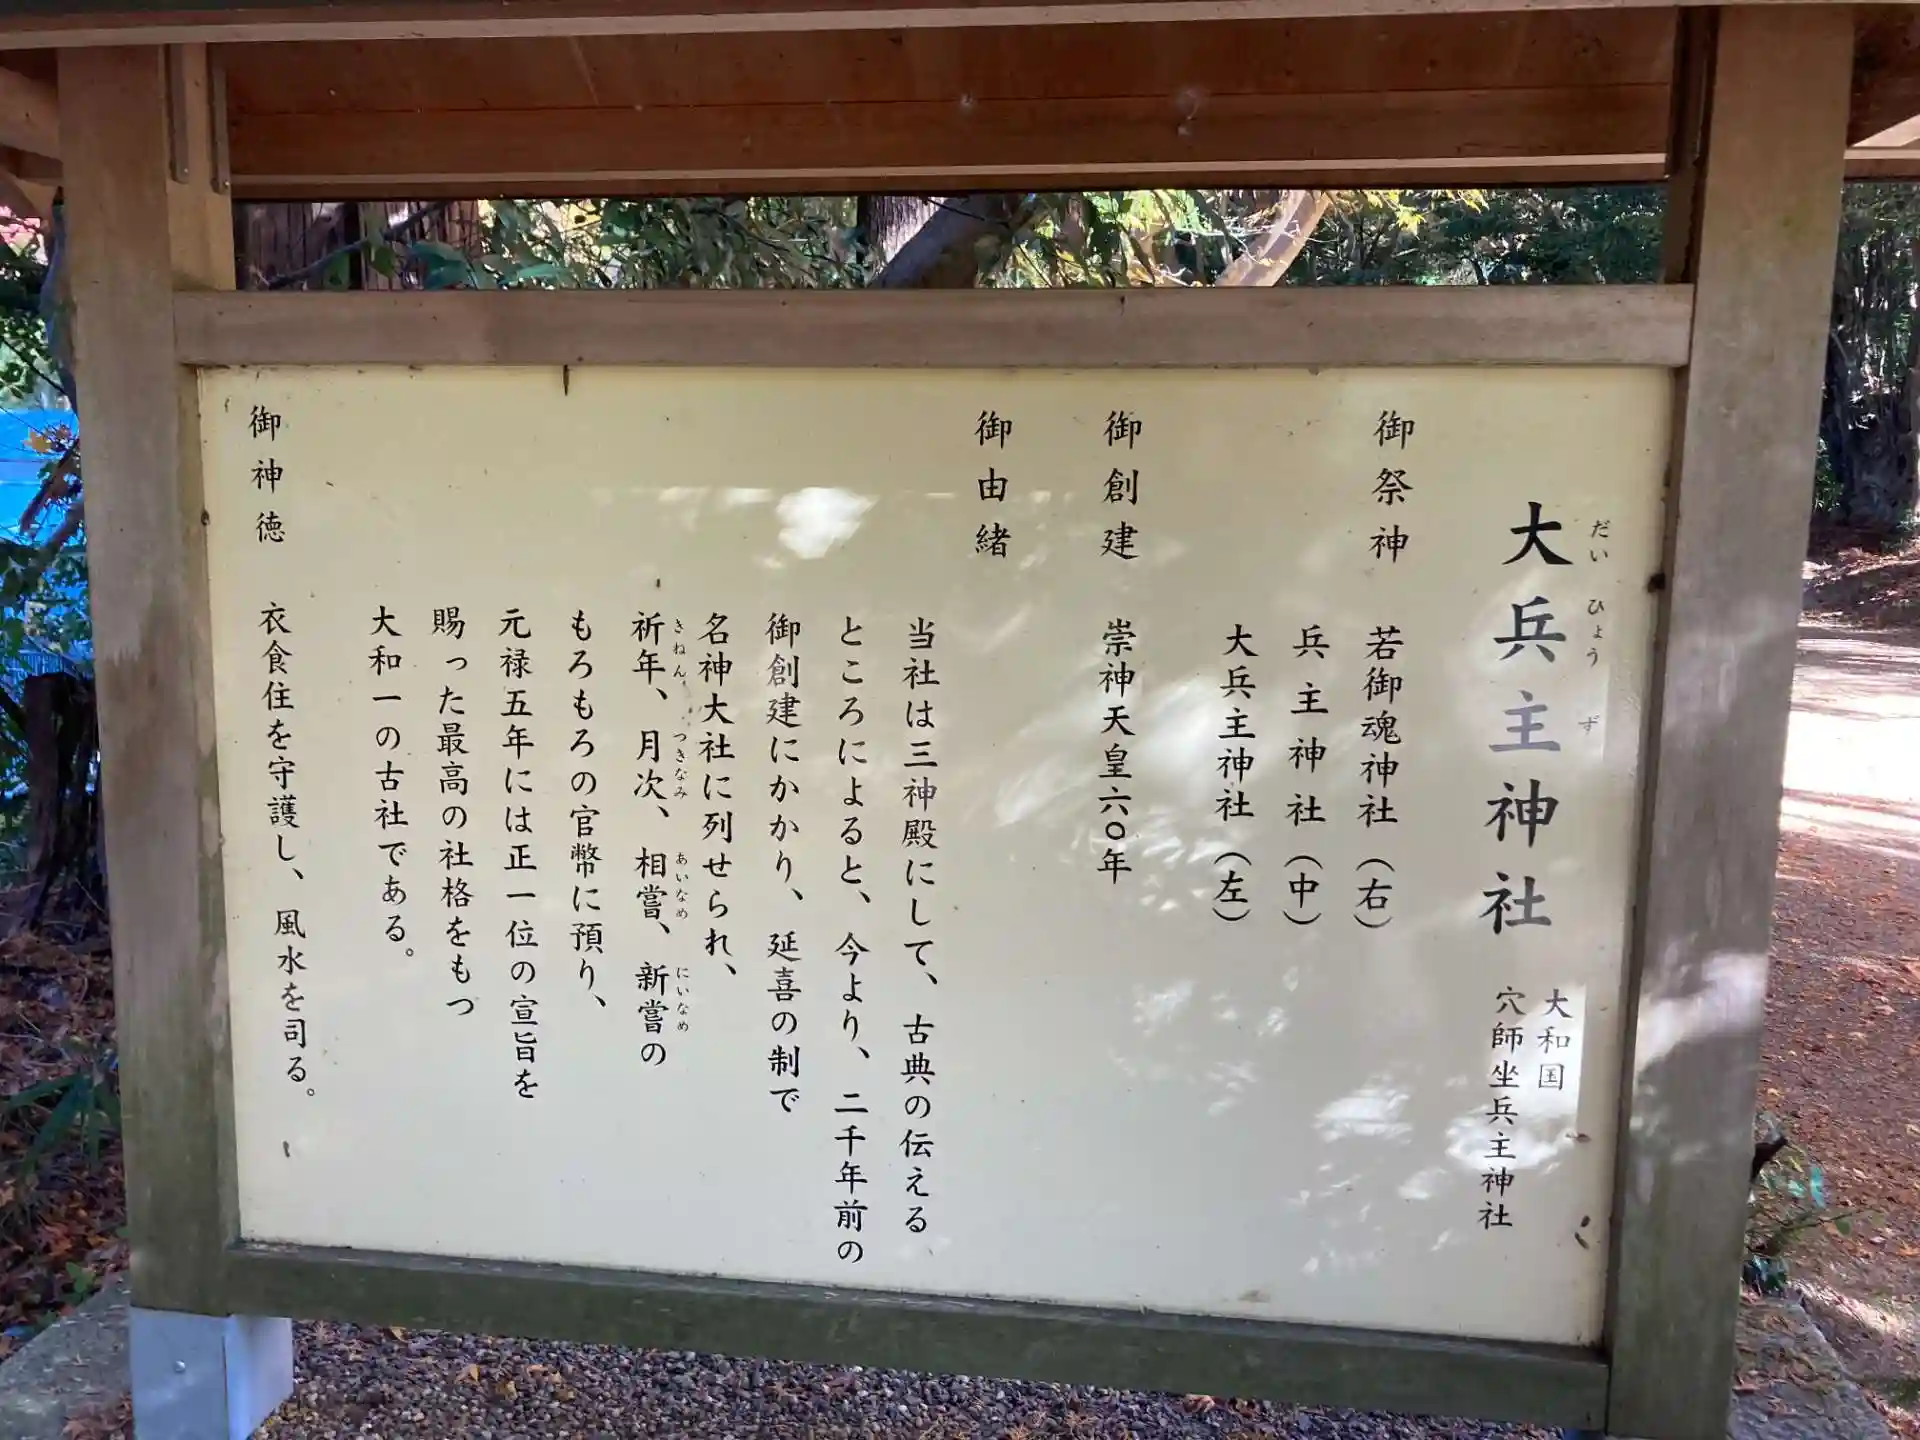 大兵主神社
だい ひょう ず
大和国
穴師坐兵主神社
御祭神 若御魂神社(右)
兵主神社(中)
大兵主神社(左)
御創建 崇神天皇六〇年
御由緒
当社は三神殿にして、古典の伝える
ところによると、今より、二千年前の
御創建にかかり、延喜の制で
名神大社に列せられ、
祈年、月次、相嘗、新嘗の
きねん つきなみ あいなめ にいなめ
もろもろの官幣に預り、
元禄五年には正一位の宣旨を
賜った最高の社格をもつ
大和一の古社である。
御神徳 衣食住を守護し、風水を司る。